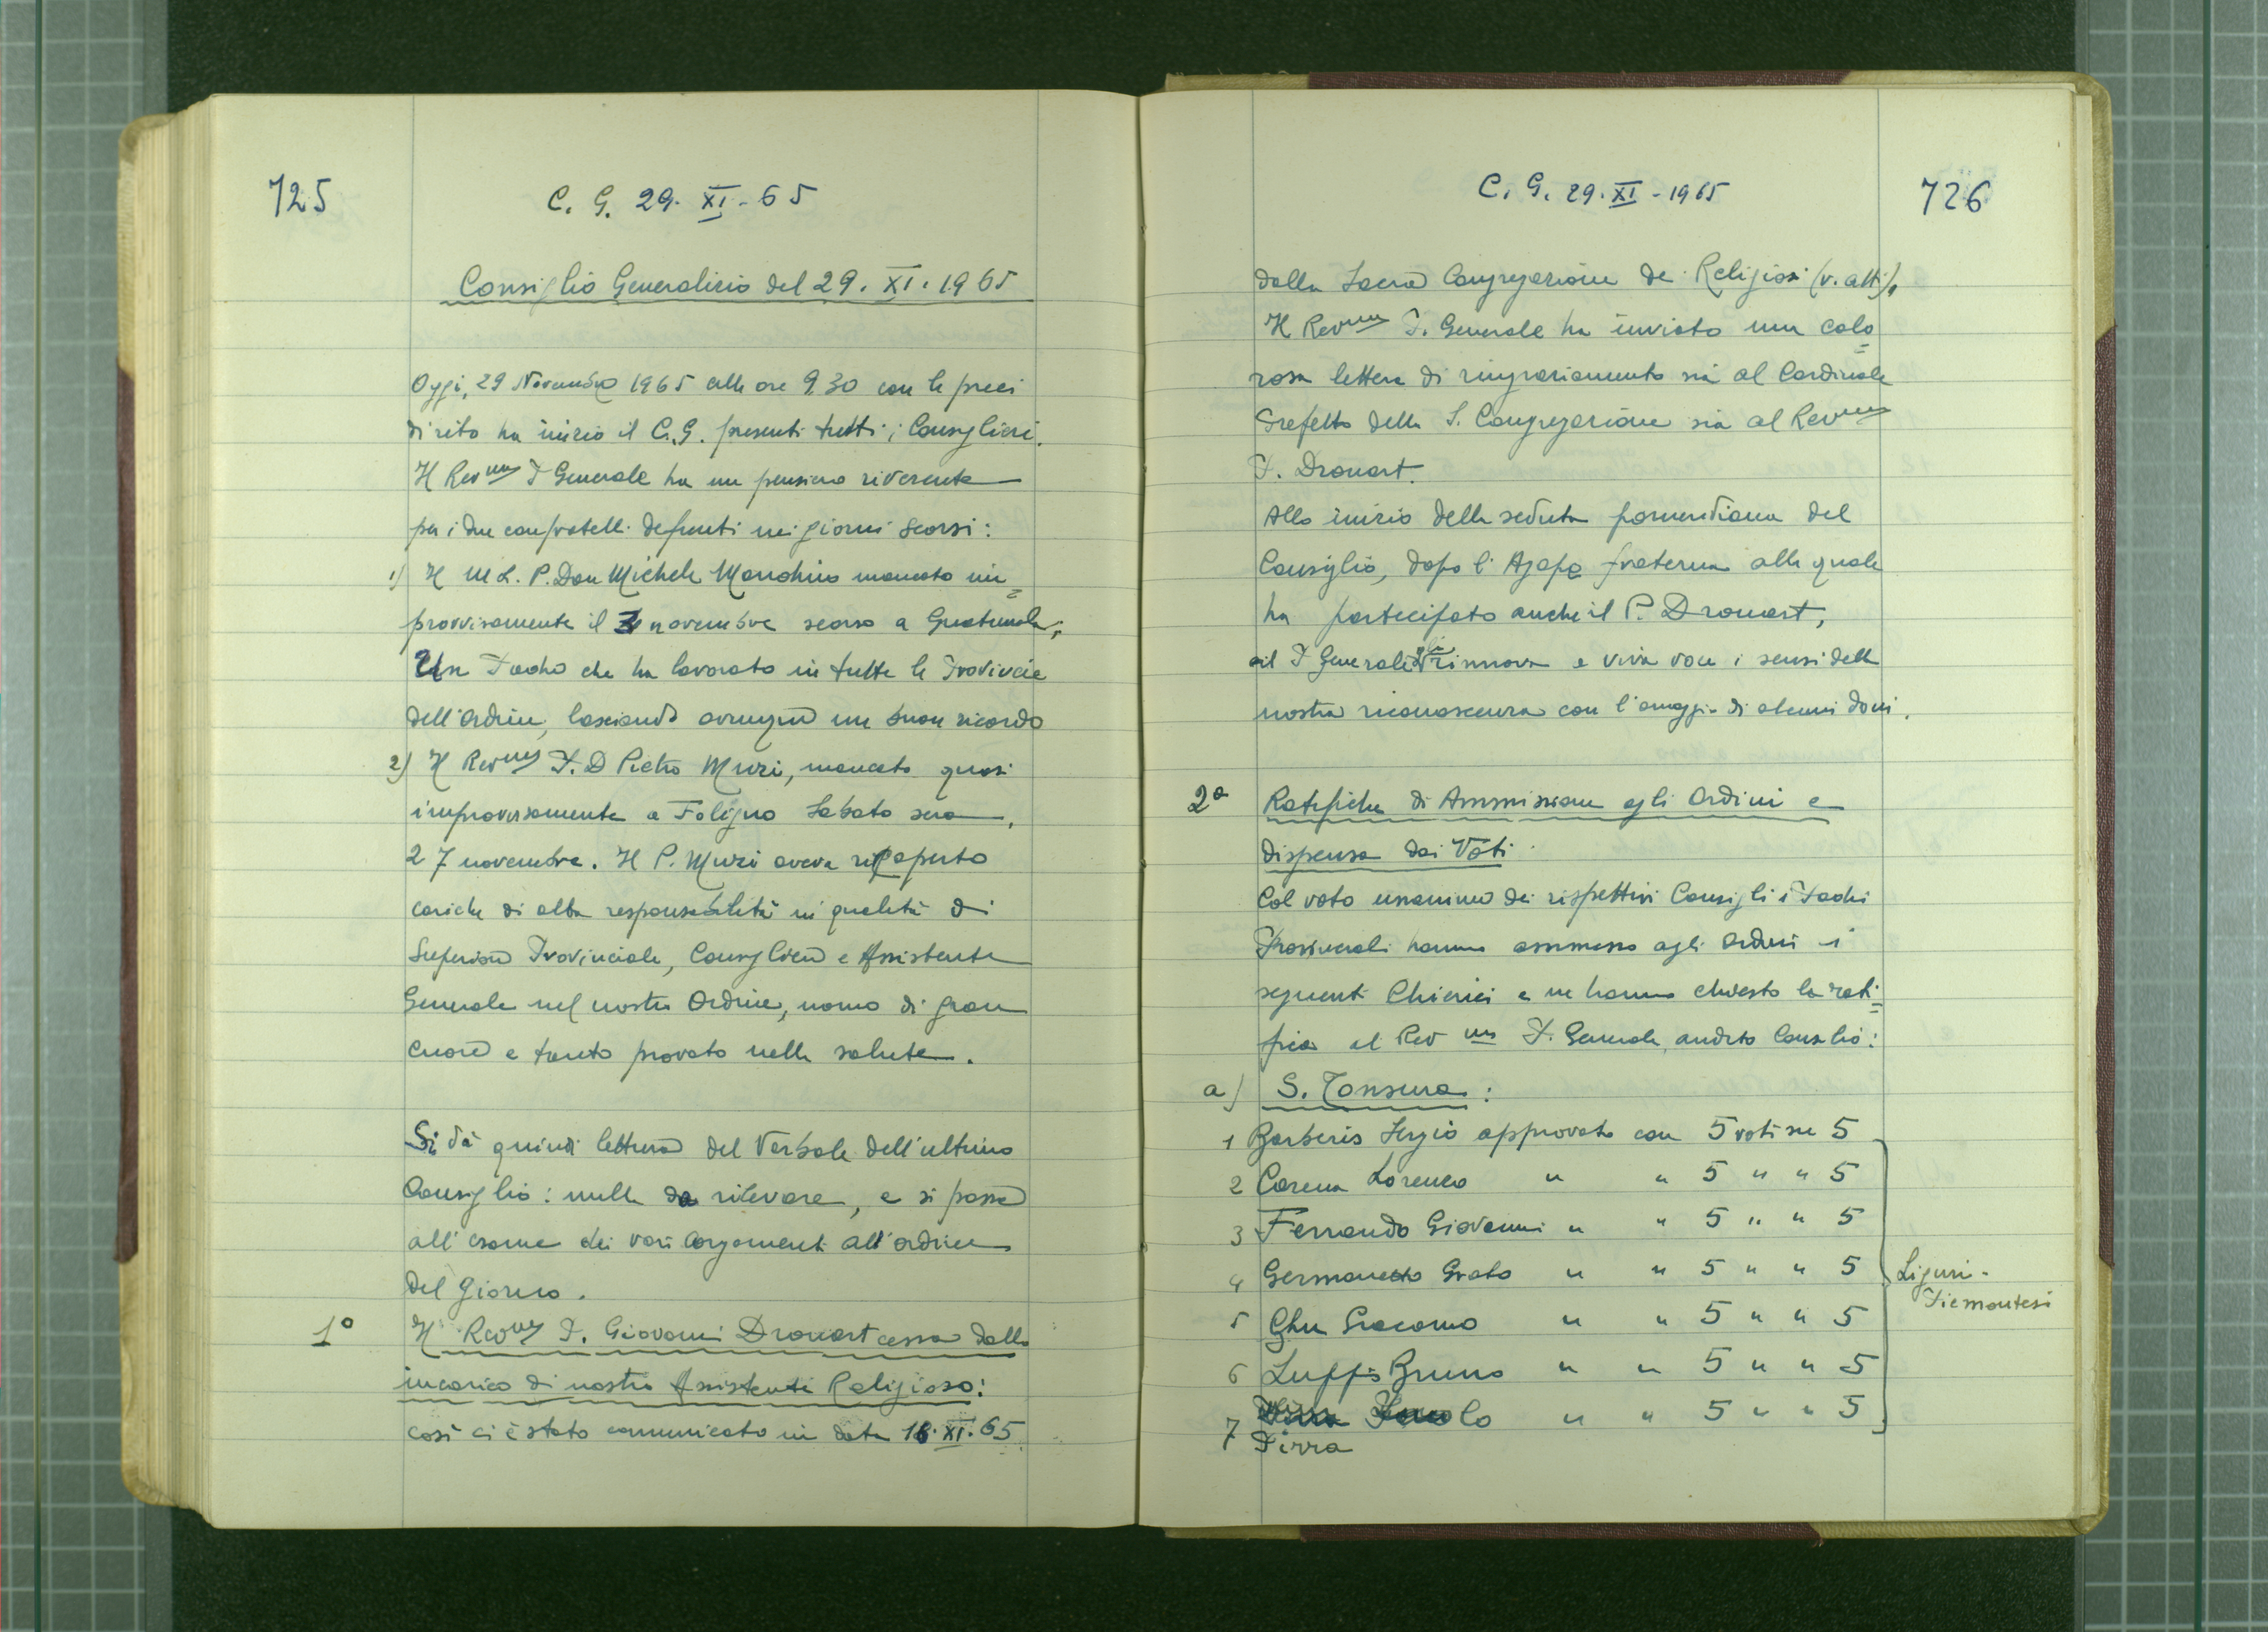 725
C. G. 29. XI. 65
Consiglio Generalizio del 29. XI. 1965
Oggi, 29 Novembre 1965 alle ore 9.30 con le preci
di rito ha inizio il C.G. presenti tutti i Consiglieri.
Il Revmo P Generale ha un pensiero riverente
per i due confratelli defunti nei giorni scorsi:
1) Il M.R. P. Don Michele mancato im=
provvisamente il 3 novembre scorso a Guatemala;
Un Padre che ha lavorato in tutte le Provincie
dell'Ordine, lasciando ovunque un buon ricordo
2) Il Revmo P. D Pietro Muzi, mancato quasi
improvvisamente a Foligno Sabato sera,
27 novembre. Il P. Muzi aveva ricoperto
cariche di alta responsabilità in qualità di
Superiore Provinciale, Consigliere e Assistente
Generale nel nostro Ordine, uomo di gran
cuore e tanto provato nella salute.
Si dà quindi lettura del Verbale dell'ultimo
Consiglio: nulla da rilevare, e si passa
all'esame dei vari argomenti all'ordine
del giorno.
1° Il Revmo P. Giovanni Drouart cessa dallo
incarico di nostro Assistente Religioso:
così ci è stato comunicato in data 18. XI. 65
C. G. 29. XI - 1965
726
dalla Sacra Congregazione de Religiosi (v. atti).
Il Revmo P. Generale ha inviato una calo=
rosa lettera di ringraziamento sia al Cardinale
Prefetto della S. Congregazione sia al Revmo
P. Drouart.
Allo inizio della seduta pomeridiana del
Consiglio, dopo l'Agape fraterna alla quale
ha partecipato anche il P. Drouart,
il P Generale rinnova a viva voce i sensi della
nostra riconoscenza con l'omaggio di alcuni doni.
2° Ratifiche di Ammissione agli Ordini e
dispensa dai Voti
Col voto unanime dei rispettivi Consigli i Padri
Provinciali hanno ammesso agli Ordini i
seguenti Chierici e ne hanno chiesto la rati=
fica al Rev mo P. Generale, audito Consilio:
a) S. Tonsura:
1 Barberis Sergio approvato con 5 voti su 5
2 Carena Lorenzo " " 5 " " 5
3 Ferrando Giovanni " " 5 " " 5
4 Germanetto Grato " " 5 " " 5
5 Ghu Giacomo " " 5 " " 5
6 Luppi Bruno " " 5 " " 5
7 Paolo " " 5 " " 5
Pirra
Liguri-
Piemontesi